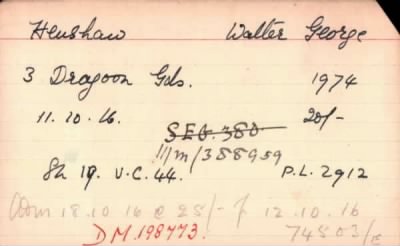 Henshaw Walter George
3 Dragoon Gds. 1974
11.10.16. 20/-
S.E.G. 380.
111/m/388959
Sh 19. V.C. 44. P.L. 2912
18.10.16 @ 25/- f 12.10.16
D.M. 198773. 74503/15